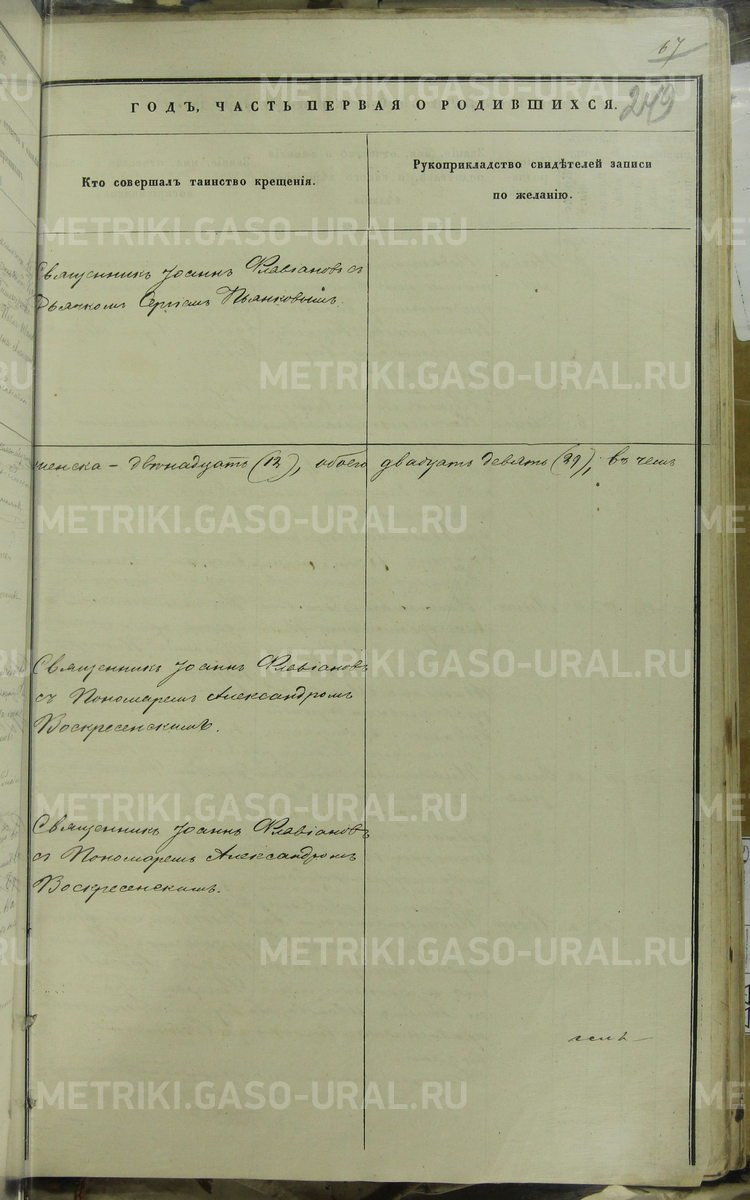 67
249
ГОДЪ, ЧАСТЬ ПЕРВАЯ О РОДИВШИХСЯ.
Кто совершалъ таинство крещенія.
Рукоприкладство свидѣтелей записи
по желанію.
Священникъ Іоаннъ Флавіановъ съ
Дьячкомъ Сергіемъ Пьянковымъ.
женска – двѣнадцать (12), обоего двадцать девять (29), въ чемъ
Священникъ Іоаннъ Флавіановъ
съ Пономаремъ Александромъ
Воскресенскимъ.
Священникъ Іоаннъ Флавіановъ
съ Пономаремъ Александромъ
Воскресенскимъ.
METRIKI.GASO-URAL.RU